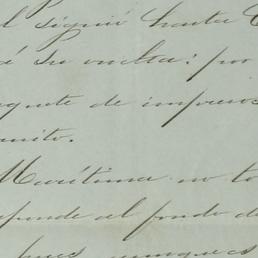 l siguió hasta
á su vuelta: por
aquete de impresos
Marítima no to
sponde al fondo de
pues aunque es